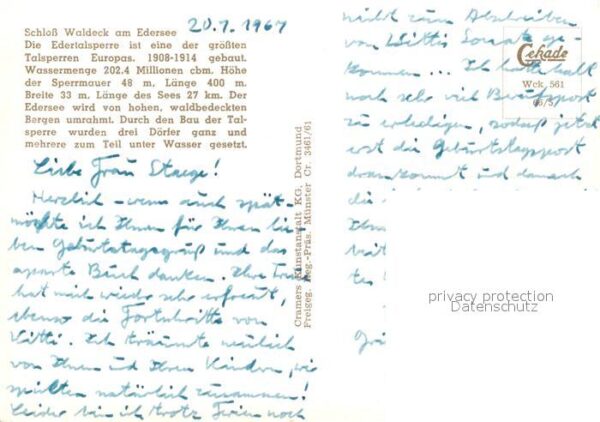 Schloß Waldeck am Edersee
20.7.1967
Die Edertalsperre ist eine der größten
Talsperren Europas. 1908-1914 gebaut.
Wassermenge 202.4 Millionen cbm. Höhe
der Sperrmauer 48 m, Länge 400 m.
Breite 33 m, Länge des Sees 27 km. Der
Edersee wird von hohen, waldbedeckten
Bergen umrahmt. Durch den Bau der Tal-
sperre wurden drei Dörfer ganz und
mehrere zum Teil unter Wasser gesetzt.
Liebe Frau Staege!
Herzlich - wenn auch spät -
möchte ich Ihnen für Ihren lie-
ben Geburtstagsgruß und das
aparte Buch danken. Ihre
hat mich wieder sehr erfreut,
ebenso die Fortschritte von
Kitti. Ich träumte neulich
von Ihnen und Ihren Kindern, wir
spielten natürlich zusammen!
Leider bin ich trotz Ferien noch
Cramers Kunstanstalt KG. Dortmund
Freigeg. Reg.-Präs. Münster Cr. 3461/61
nicht zum Abschreiben
von Kittis Sonate ge-
kommen... Ich hatte halt
noch sehr viel Berufspost
zu erledigen, sodaß jetzt
erst die Geburtstagspost
drankommt und danach
die
Ihn
tes!
Grü
Cekade
Wck. 561
privacy protection
Datenschutz